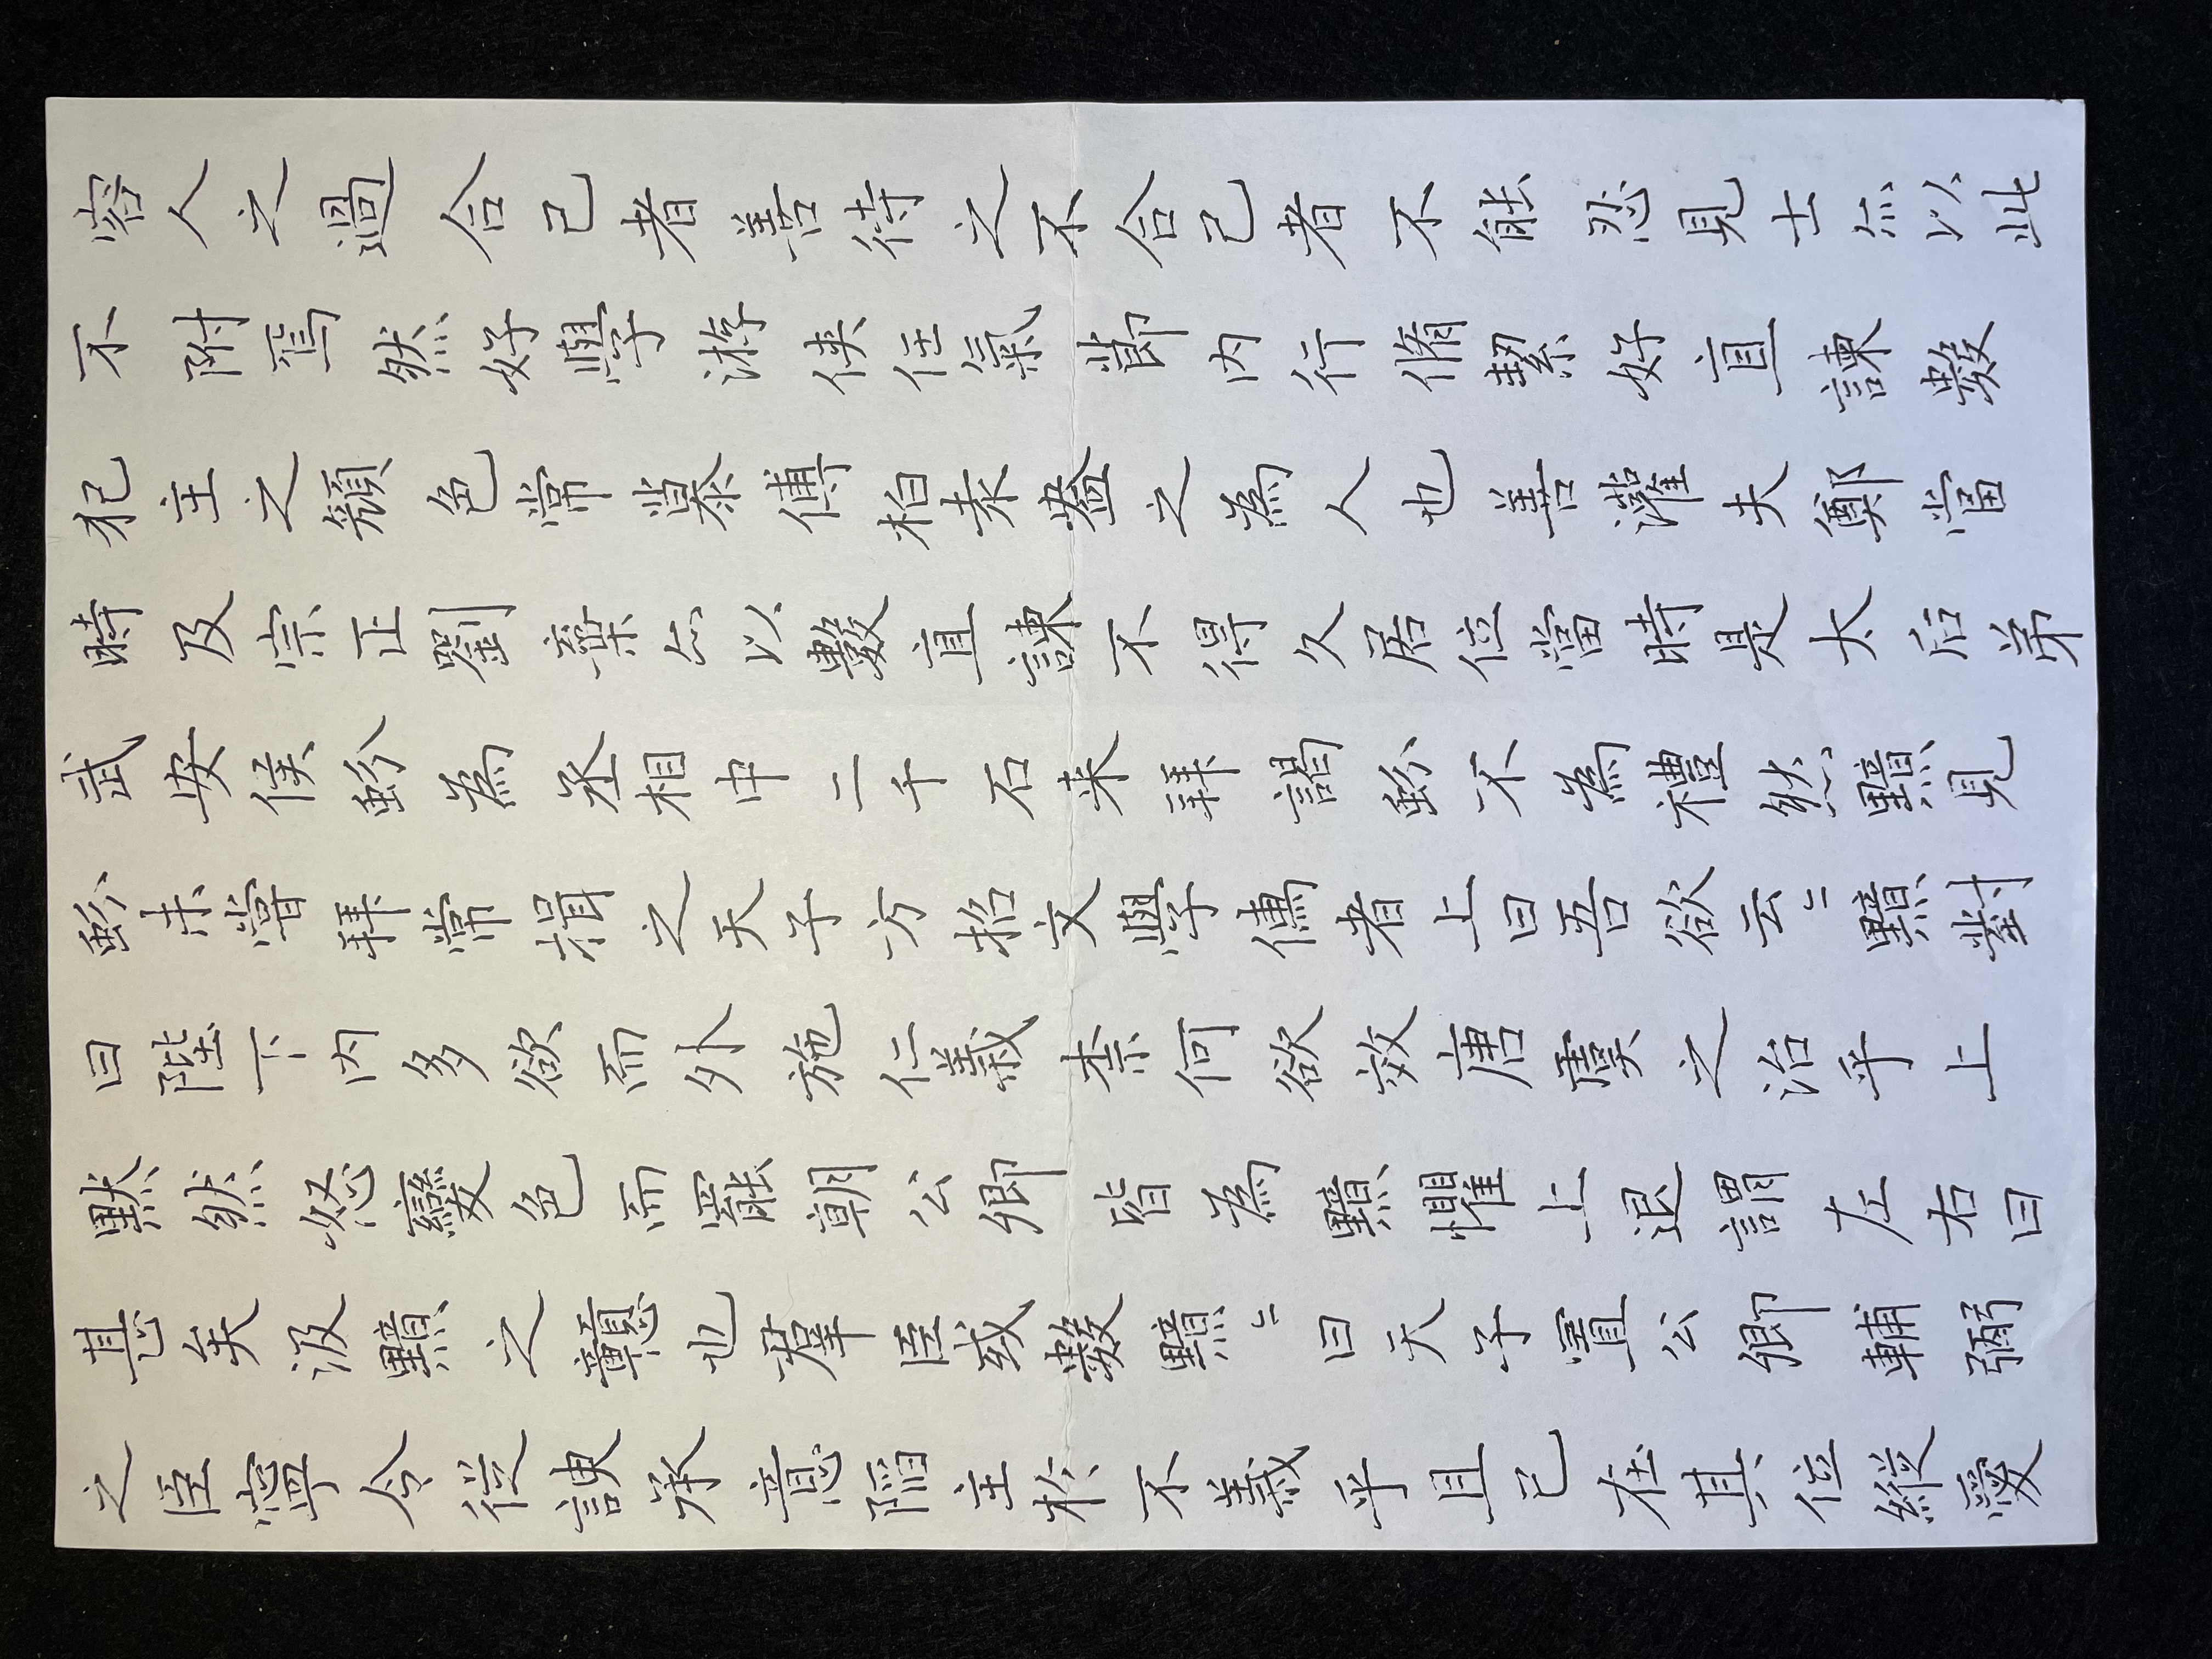 容人之過合己者善待之不合己者不能忍見士亦以此
不附焉然好學游俠任氣節內行脩絜好直諫數
犯主之顏色常慕傅柏袁盎之為人也善灌夫鄭當
時及宗正劉棄亦以數直諫不得久居位當時是太后弟
武安侯蚡為丞相中二千石来拜謁蚡不為禮然黯見
蚡未嘗拜常揖之天子方招文學儒者上曰吾欲云〻黯對
曰陛下內多欲而外施仁義柰何欲效唐虞之治乎上
默然怒變色而罷朝公卿皆為黯懼上退謂左右曰
甚矣汲黯之戇也羣臣或數黯〻曰天子置公卿輔弼
之臣寧令從諛承意陷主於不義乎且已在其位縱愛